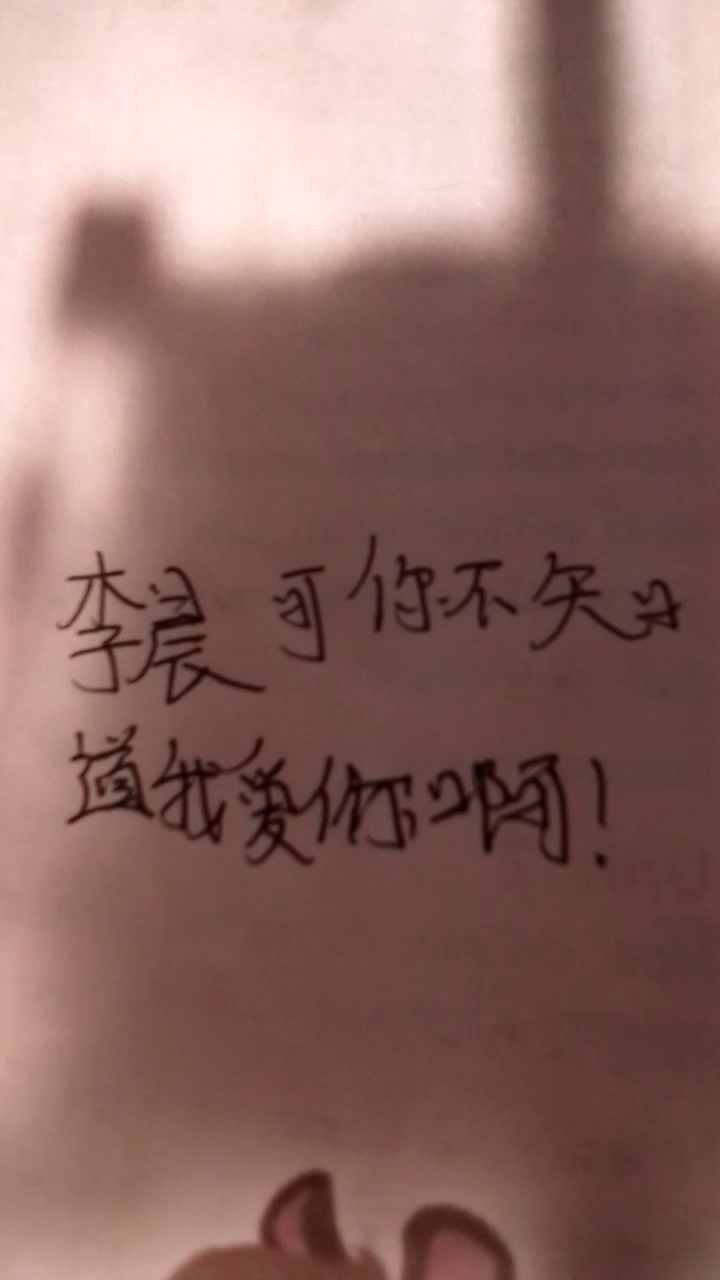 李晨 可你不知
道我爱你啊！